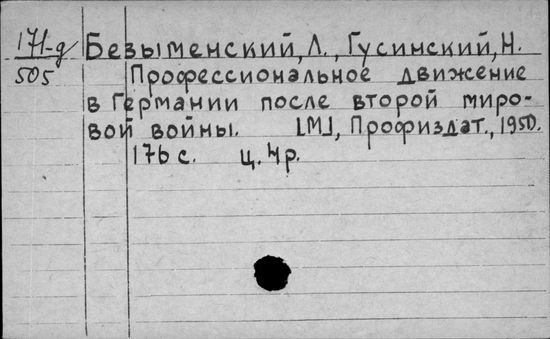 171-д Безыменский, Л., Гусинский, Н.
505 Профессиональное движение
в Германии после второй миро-
вой войны. [М], Профиздат., 1950.
176 с. ц. 4р.